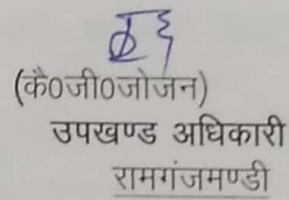 (कै0जी0जोजन)
उपखण्ड अधिकारी
रामगंजमण्डी